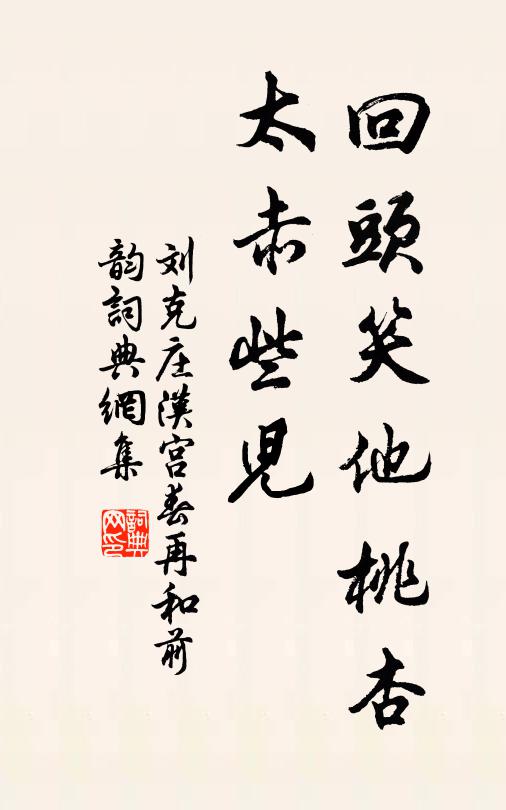 回頭笑他桃杏
太赤些兒
刘克庄漢宮春再和前
韵詞典網集
詞典网印